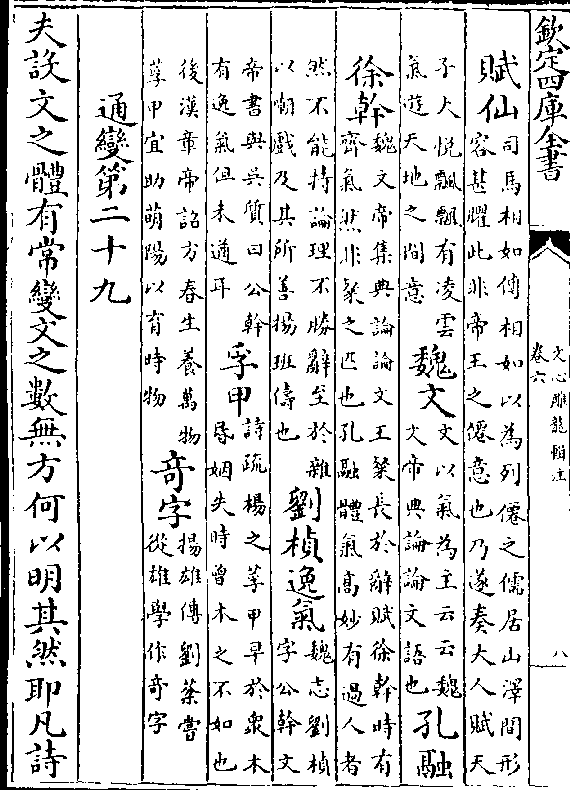 欽定四庫全書
文心雕龍輯注
卷六
八
賦仙
司馬相如傳相如以為列僊之儒居山澤間形
容甚臞此非帝王之僊意也乃遂奏大人賦天
子大悦飄飄有凌雲
氣遊天地之間意
魏文
文以氣為主云云魏
文帝典論論文語也
孔融
徐幹
魏文帝集典論論文王粲長於辭賦徐幹時有
齊氣然非粲之匹也孔融體氣髙妙有過人者
然不能持論理不勝辭至於雜
以嘲戲及其所善揚班儔也
劉楨逸氣
魏志劉楨
字公幹文
帝書與吳質曰公幹
有逸氣但未遒耳
孚甲
詩疏楊之莩甲早於衆木
昬姻失時曾木之不如也
後漢章帝詔方春生養萬物
莩甲宜助萌陽以育時物
奇字
揚雄傳劉棻嘗
從雄學作奇字
通變第二十九
夫設文之體有常變文之數無方何以明其然耶凡詩